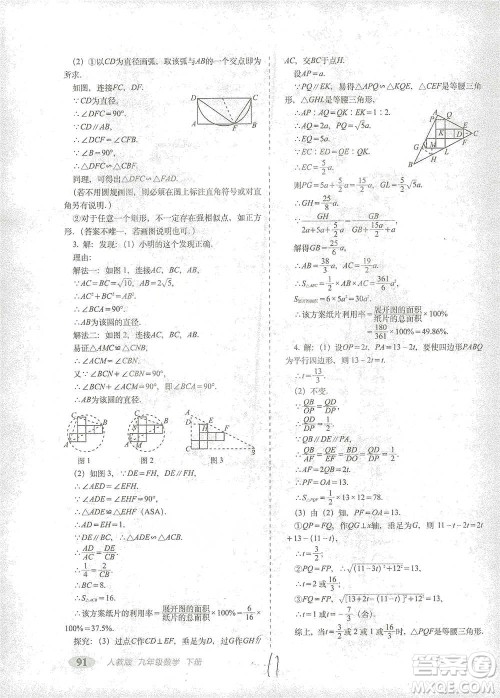 (2)①以CD为直径画弧,取该弧与AB的一个交点即为
所求.
如图,连接FC、DF.
∵CD为直径,
∴∠DFC=90°.
∵CD∥AB,
∴∠DCF=∠CFB.
∵∠B=90°,
∴△DFC∽△CBF.
同理,可得出△DFC∽△FAD.
(若不用圆规画图,则必须在图上标注直角符号或对直
角另有说明.)
②对于任意一个矩形,不一定存在强相似点,如正方
形.(答案不唯一,若画图说明也可)
3.解:发现:(1)小明的这个发现正确.
理由:
解法一:如图1,连接AC、BC、AB.
∵AC=BC=√10,AB=2√5.
∴AC²+BC²=AB².
∴∠BCA=90°.
∴AB为该圆的直径.
解法二:如图2,连接AC、BC、AB.
易证△AMC≌△CNB.
∴∠ACM=∠CBN.
∵∠BCN+∠CBN=90°,
∴∠BCN+∠ACM=90°.
∴∠BCA=90°.
∴AB为该圆的直径.
图1 图2 图3
(2)如图3,∵DE=FH,DE∥FH,
∴∠AED=∠EFH.
∵∠ADE=∠EHF=90°,
∴△ADE≌△EHF(ASA).
∴AD=EH=1.
∵DE∥BC,
∴△ADE∽△ACB.
∴AD/AC=DE/CB.
∴1/4=2/CB.
∴BC=8.
∴该方案纸片的利用率=展开图的面积/纸片的总面积×100%=6/16×
100%=37.5%.
探究:(3)过点C作CD⊥EF,过点G作GH∥
AC,交BC于点H.
设AP=a.
∵PQ∥EK,易得△APQ∽△KQE,△CEF是等腰三角
形,△GHL是等腰三角形.
∴AP:AQ=QK:EK=1:2.
∴AQ=2a,PQ=√5a.
∴EQ=5a.
∵EC:ED=QE:QK,
∴GB/(GB+a)=GH/25/2a.
解得GB=25/3a.
∴AB=38/3a.
∴该方案纸片利用率=展开图的面积/纸片的总面积×100%
=180/361×100%=49.86%.
4.解:(1)设OP=2t,QB=t,PA=13-2t,要使四边形PABQ
为平行四边形,则13-2t=t.
∴t=13/3.
(2)不变.
∵QB/OP=QD/DP=1/2,
∵QB∥PA,
∴QB/AF=BE/EF=QD/DP=1/2.
∴AF=2QB=2t=OP.
∴PF=OA=13.
∴S△PQF=1/2×13×12=78.
(3)由(2)知,PF=OA=13.
①QP=FQ,作QG⊥x轴,垂足为G,则11-t-2t=2t
+13-(11-t).
∴t=3/2.
②PQ=FP,∴√((11-3t)²+12²)=13.
∴t=2或16/3.
③FQ=FP,∴√([13+2t-(11-t)]²+12²)=13.
∴t=1.
综上,当t=3/2或2或16/3或1时,△PQF是等腰三角形.
91 人教版 九年级数学 下册